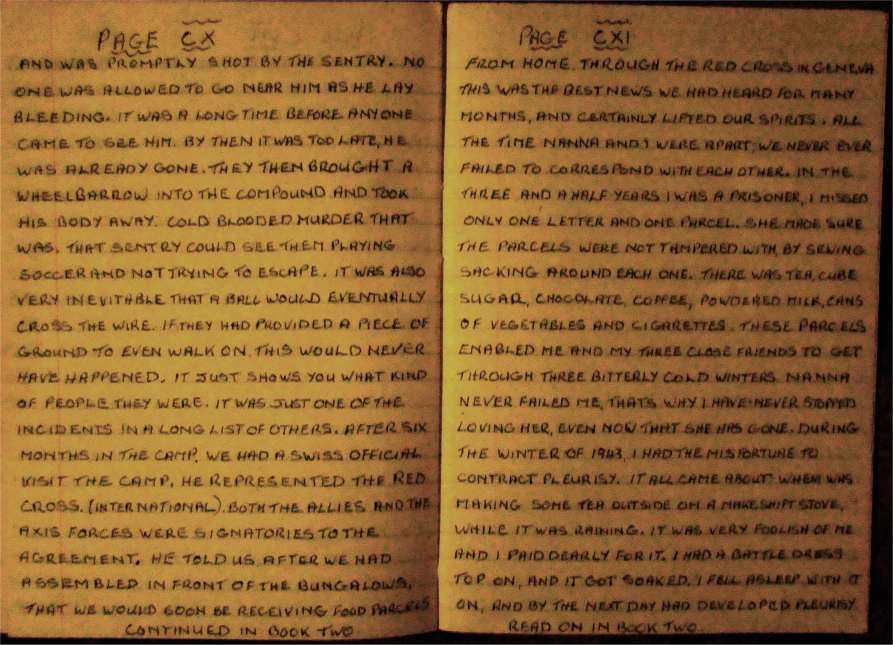 PAGE CX
AND WAS PROMPTLY SHOT BY THE SENTRY. NO
ONE WAS ALLOWED TO GO NEAR HIM AS HE LAY
BLEEDING. IT WAS A LONG TIME BEFORE ANYONE
CAME TO SEE HIM. BY THEN IT WAS TOO LATE, HE
WAS ALREADY GONE. THEY THEN BROUGHT A
WHEELBARROW INTO THE COMPOUND AND TOOK
HIS BODY AWAY. COLD BLOODED MURDER THAT
WAS. THAT SENTRY COULD SEE THEM PLAYING
SOCCER AND NOT TRYING TO ESCAPE. IT WAS ALSO
VERY INEVITABLE THAT A BALL WOULD EVENTUALLY
CROSS THE WIRE. IF THEY HAD PROVIDED A PIECE OF
GROUND TO EVEN WALK ON. THIS WOULD NEVER
HAVE HAPPENED. IT JUST SHOWS YOU WHAT KIND
OF PEOPLE THEY WERE. IT WAS JUST ONE OF THE
INCIDENTS IN A LONG LIST OF OTHERS. AFTER SIX
MONTHS IN THE CAMP, WE HAD A SWISS OFFICIAL
VISIT THE CAMP. HE REPRESENTED THE RED
CROSS. (INTERNATIONAL). BOTH THE ALLIES AND THE
AXIS FORCES WERE SIGNATORIES TO THE
AGREEMENT. HE TOLD US AFTER WE HAD
ASSEMBLED IN FRONT OF THE BUNGALOWS,
THAT WE WOULD SOON BE RECEIVING FOOD PARCELS
CONTINUED IN BOOK TWO
PAGE CXI
FROM HOME. THROUGH THE RED CROSS IN GENEVA
THIS WAS THE BEST NEWS WE HAD HEARD FOR MANY
MONTHS, AND CERTAINLY LIFTED OUR SPIRITS. ALL
THE TIME NANNA AND I WERE APART, WE NEVER EVER
FAILED TO CORRESPOND WITH EACH OTHER. IN THE
THREE AND A HALF YEARS I WAS A PRISONER, I MISSED
ONLY ONE LETTER AND ONE PARCEL. SHE MADE SURE
THE PARCELS WERE NOT TAMPERED WITH, BY SEWING
SACKING AROUND EACH ONE. THERE WAS TEA, CUBE
SUGAR, CHOCOLATE, COFFEE, POWDERED MILK, CANS
OF VEGETABLES AND CIGARETTES. THESE PARCELS
ENABLED ME AND MY THREE CLOSE FRIENDS TO GET
THROUGH THREE BITTERLY COLD WINTERS NANNA
NEVER FAILED ME, THATS WHY I HAVE NEVER STOPPED
LOVING HER, EVEN NOW THAT SHE HAS GONE. DURING
THE WINTER OF 1943, I HAD THE MISFORTUNE TO
CONTRACT PLEURISY. IT ALL CAME ABOUT WHEN WAS
MAKING SOME TEA OUTSIDE ON A MAKESHIFT STOVE,
WHILE IT WAS RAINING. IT WAS VERY FOOLISH OF ME
AND I PAID DEARLY FOR IT. I HAD A BATTLE DRESS
TOP ON, AND IT GOT SOAKED. I FELL ASLEEP WITH IT
ON, AND BY THE NEXT DAY HAD DEVELOPED PLEURISY
READ ON IN BOOK TWO